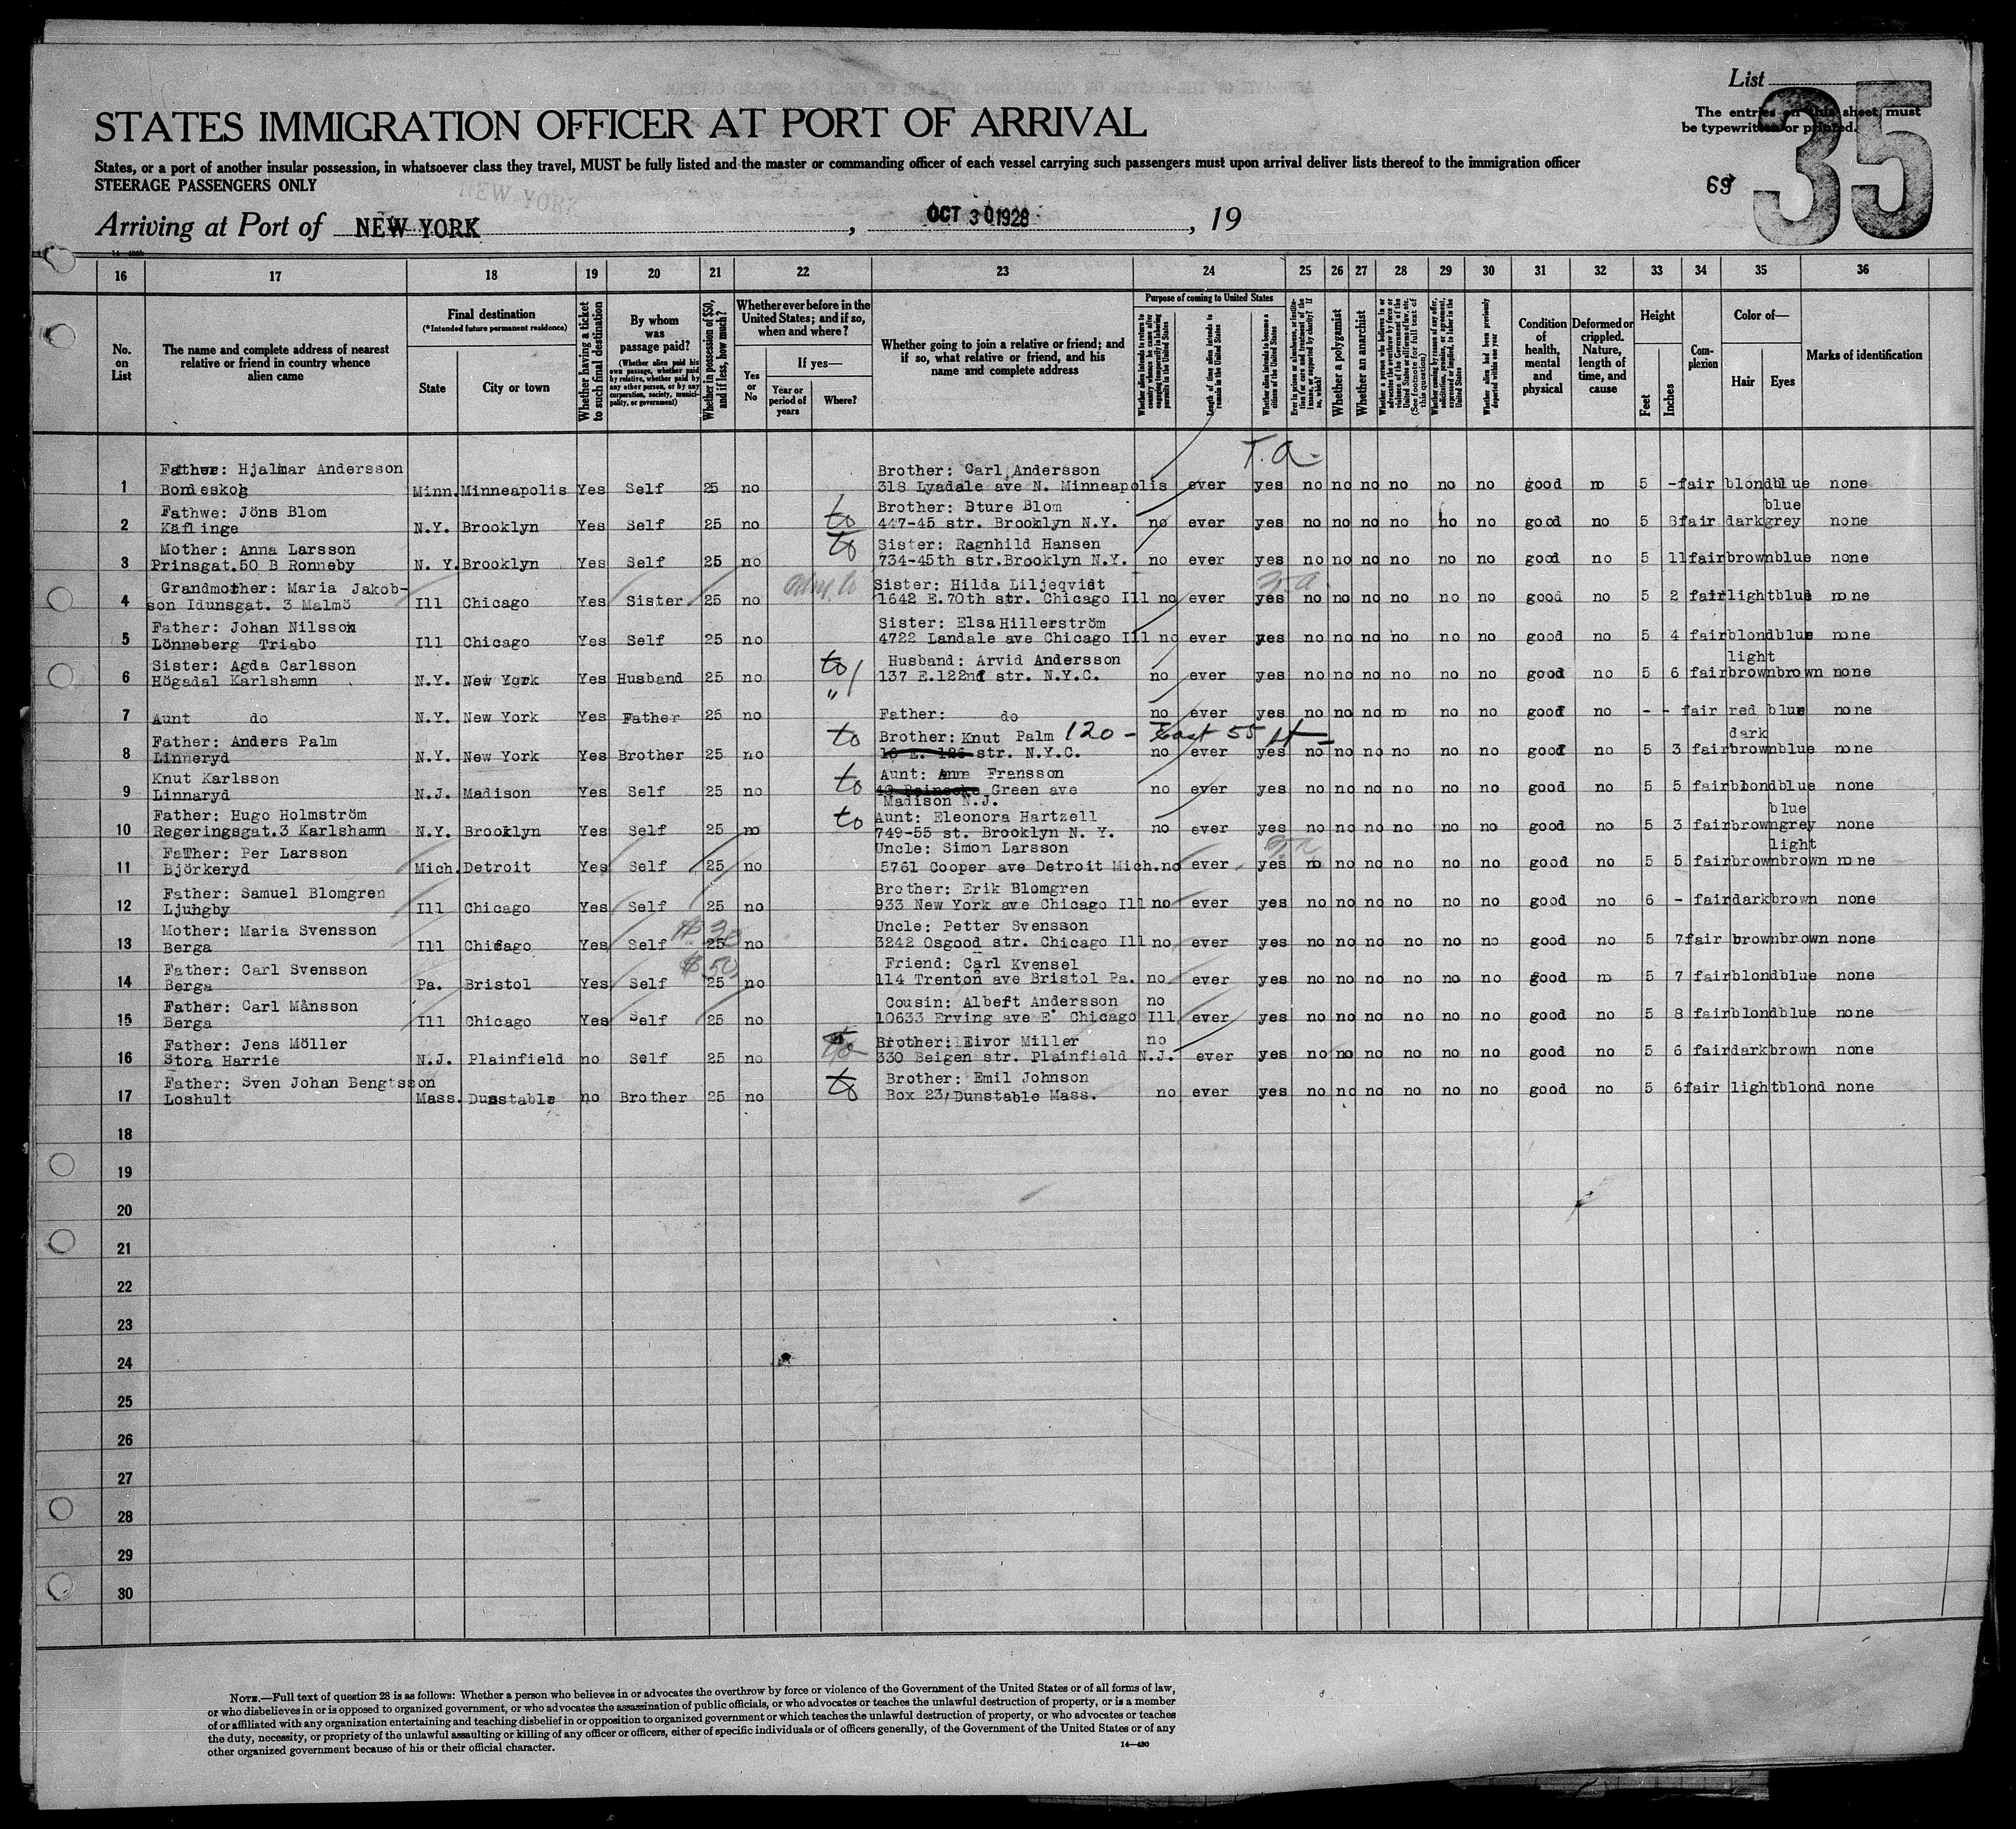 List
35
The entries on this sheet must
be typewritten or printed.
STATES IMMIGRATION OFFICER AT PORT OF ARRIVAL
States, or a port of another insular possession, in whatsoever class they travel, MUST be fully listed and the master or commanding officer of each vessel carrying such passengers must upon arrival deliver lists thereof to the immigration officer
STEERAGE PASSENGERS ONLY
NEW YORK
69
Arriving at Port of NEW YORK, OCT 30 1928, 19
16 17 18 19 20 21 22 23 24 25 26 27 28 29 30 31 32 33 34 35 36
No. on List
The name and complete address of nearest relative or friend in country whence alien came
Final destination
(*Intended future permanent residence)
State
City or town
Whether having a ticket to such final destination
By whom was passage paid?
(Whether alien paid his own passage, whether paid by relative, whether paid by any other person, or by any corporation, society, municipality, or government)
Whether in possession of $50, and if less, how much?
Whether ever before in the United States; and if so, when and where?
Yes or No
If yes—
Year or period of years
Where?
Whether going to join a relative or friend; and if so, what relative or friend, and his name and complete address
Purpose of coming to United States
Whether alien intends to return to country whence he came after engaging temporarily in laboring pursuits in the United States
Length of time alien intends to remain in the United States
Whether alien intends to become a citizen of the United States
Ever in prison or almshouse, or institution for care and treatment of the insane, or supported by charity? If so, which?
Whether a polygamist
Whether an anarchist
Whether a person who believes in or advocates the overthrow by force or violence of the Government of the United States or all forms of law, etc. (See footnote for full text of this question)
Whether coming by reason of any offer, solicitation, promise, or agreement, expressed or implied, to labor in the United States
Whether alien had been previously deported within one year
Condition of health, mental and physical
Deformed or crippled. Nature, length of time, and cause
Height
Feet
Inches
Complexion
Color of—
Hair
Eyes
Marks of identification
T.A.
Father: Hjalmar Andersson Brother: Carl Andersson
1 Bondeskog Minn. Minneapolis Yes Self 25 no 318 Lyadale ave N. Minneapolis ever yes no no no no no no good no 5 - fair blond blue none
Fathwe: Jöns Blom to Brother: Dture Blom blue
2 Käflinge N.Y. Brooklyn Yes Self 25 no 447-45 str. Brooklyn N.Y. no ever yes no no no no no no good no 5 8 fair dark grey none
Mother: Anna Larsson to Sister: Ragnhild Hansen
3 Prinsgat.50 B Ronneby N.Y. Brooklyn Yes Self 25 no 734-45th str.Brooklyn N.Y. no ever yes no no no no no no good no 5 11 fair brown blue none
Grandmother: Maria Jakob- Sister: Hilda Liljeqvist
4 son Idunsgat. 3 Malmö Ill Chicago Yes Sister 25 no 1642 E.70th str. Chicago Ill no ever yes no no no no no no good no 5 2 fair light blue none
Father: Johan Nilsson Sister: Elsa Hillerström
5 Lönneberg Triabo Ill Chicago Yes Self 25 no 4722 Landale ave Chicago Ill no ever yes no no no no no no good no 5 4 fair blond blue none
Sister: Agda Carlsson to Husband: Arvid Andersson light
6 Högadal Karlshamn N.Y. New York Yes Husband 25 no 137 E.122nd str. N.Y.C. no ever yes no no no no no no good no 5 6 fair brown brown none
"
7 Aunt do N.Y. New York Yes Father 25 no Father: do no ever yes no no no no no no good no - - fair red blue none
Father: Anders Palm to Brother: Knut Palm 120 - East 55 st dark
8 Linneryd N.Y. New York Yes Brother 25 no 16 E. 126 str. N.Y.C. no ever yes no no no no no no good no 5 3 fair brown blue none
Knut Karlsson to Aunt: Anna Fransson
9 Linnaryd N.J. Madison Yes Self 25 no Green ave no ever yes no no no no no no good no 5 5 fair blond blue none
Madison N.J.
Father: Hugo Holmström to Aunt: Eleonora Hartzell blue
10 Regeringsgat.3 Karlshamn N.Y. Brooklyn Yes Self 25 no 749-55 st. Brooklyn N. Y. no ever yes no no no no no no good no 5 3 fair brown grey none
Father: Per Larsson Uncle: Simon Larsson light
11 Björkeryd Mich. Detroit Yes Self 25 no 5761 Cooper ave Detroit Mich. no ever yes no no no no no no good no 5 5 fair brown brown none
Father: Samuel Blomgren Brother: Erik Blomgren
12 Ljungby Ill Chicago Yes Self 25 no 933 New York ave Chicago Ill no ever yes no no no no no no good no 6 - fair dark brown none
Mother: Maria Svensson Uncle: Petter Svensson
13 Berga Ill Chicago Yes Self 25 no 3242 Osgood str. Chicago Ill no ever yes no no no no no no good no 5 7 fair brown brown none
Father: Carl Svensson $50 Friend: Carl Kvensel
14 Berga Pa. Bristol Yes Self 25 no 114 Trenton ave Bristol Pa. no ever yes no no no no no no good no 5 7 fair blond blue none
Father: Carl Månsson Cousin: Albeft Andersson no
15 Berga Ill Chicago Yes Self 25 no 10633 Erving ave E. Chicago Ill ever yes no no no no no no good no 5 8 fair blond blue none
Father: Jens Möller to Brother: Eivor Miller no
16 Stora Harrie N.J. Plainfield no Self 25 no 330 Beigen str. Plainfield N.J. ever yes no no no no no no good no 5 6 fair dark brown none
Father: Sven Johan Bengtsson to Brother: Emil Johnson
17 Loshult Mass. Dunstable no Brother 25 no Box 23, Dunstable Mass. no ever yes no no no no no no good no 5 6 fair light blond none
18
19
20
21
22
23
24
25
26
27
28
29
30
NOTE.—Full text of question 28 is as follows: Whether a person who believes in or advocates the overthrow by force or violence of the Government of the United States or of all forms of law,
or who disbelieves in or is opposed to organized government, or who advocates the assassination of public officials, or who advocates or teaches the unlawful destruction of property, or is a member
of or affiliated with any organization entertaining and teaching disbelief in or opposition to organized government or which teaches the unlawful destruction of property, or who advocates or teaches
the duty, necessity, or propriety of the unlawful assaulting or killing of any officer or officers, either of specific individuals or of officers generally, of the Government of the United States or of any
other organized government because of his or their official character.
14—430